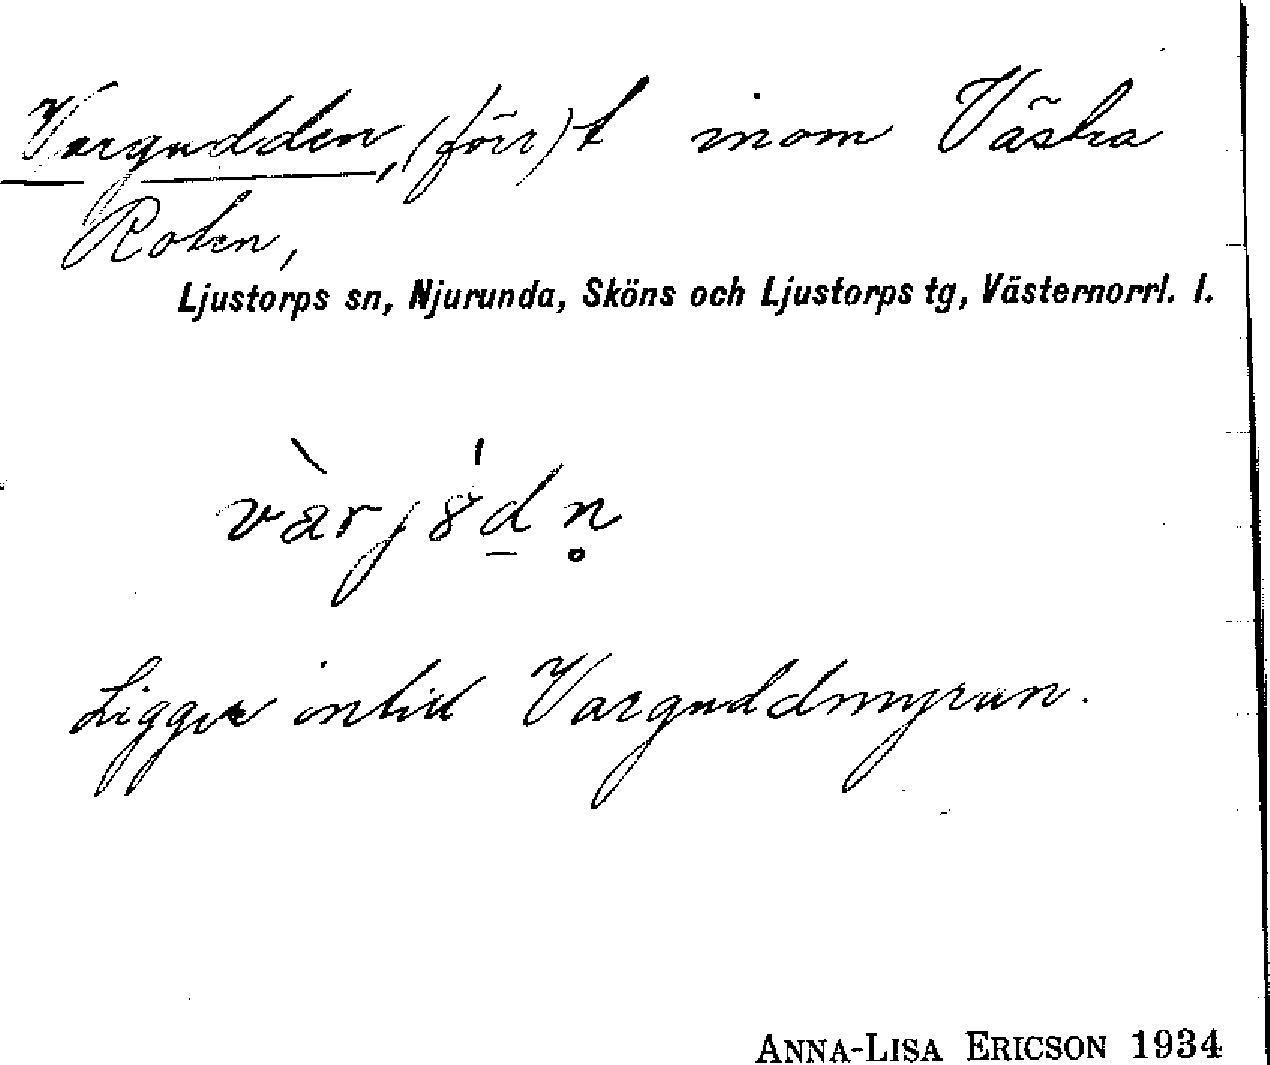 Vargudden, (förr) t inom Västra
Roten,
Ljustorps sn, Njurunda, Sköns och Ljustorps tg, Västernorrl. l.
vàrj8́d̲n̥
Ligger intill Varguddmyran.
ANNA-LISA ERICSON 1934